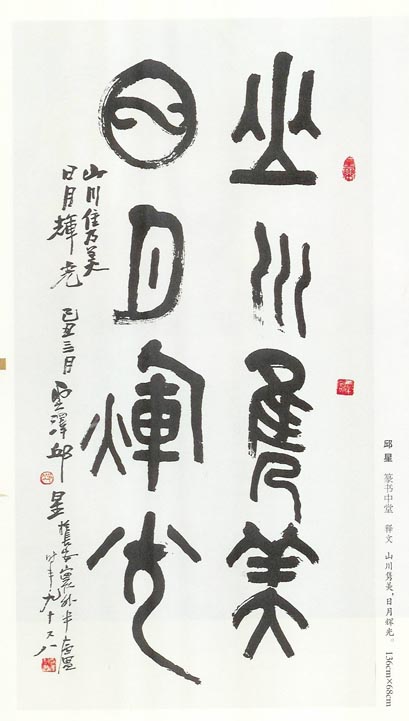 山川雋美
日月煇光
山川雋美
日月輝光 己丑三月 雲澤邱星
时年九十又八
邱星 篆书中堂 释文 山川隽美，日月辉光。 136cm×68cm